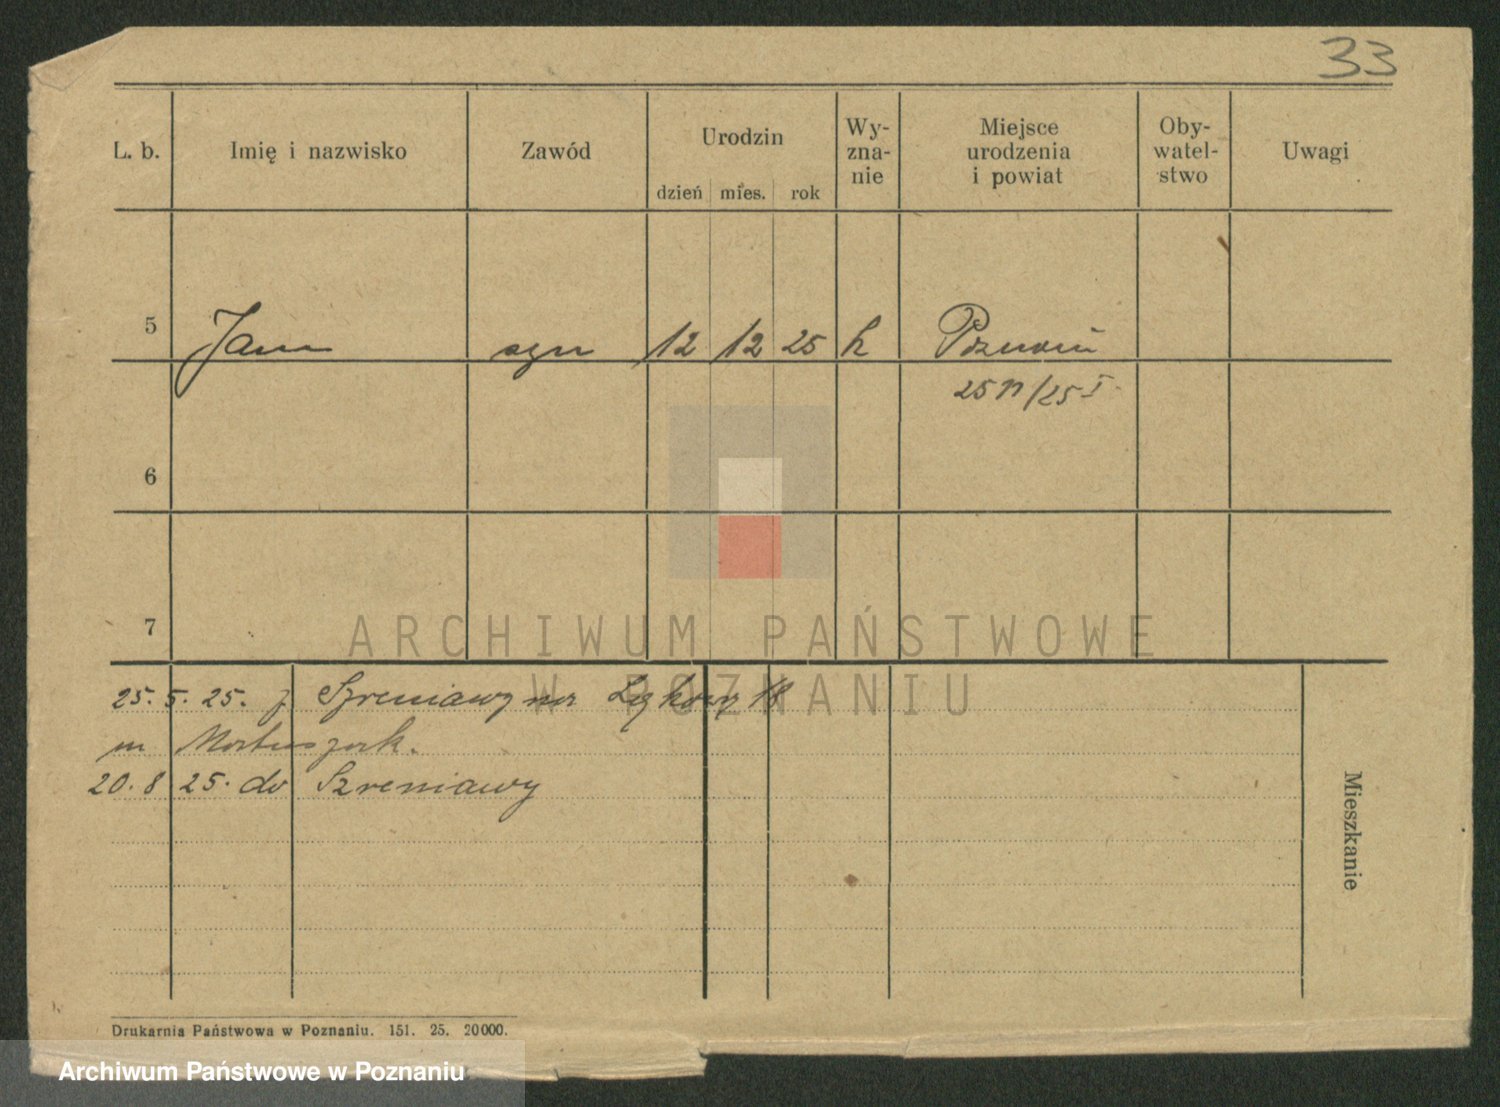 33
L. b. Imię i nazwisko Zawód Urodzin Wy-
zna-
nie Miejsce
urodzenia
i powiat Oby-
watel-
stwo Uwagi
dzień mies. rok
5 Jan syn 12 12 25 k Poznań
6
7
25. 5. 25. z Szreniawy na Łąkową 18
m
20. 8 25. do Szreniawy
Mieszkanie
Drukarnia Państwowa w Poznaniu. 151. 25. 20000.
ARCHIWUM PAŃSTWOWE
W POZNANIU
Archiwum Państwowe w Poznaniu